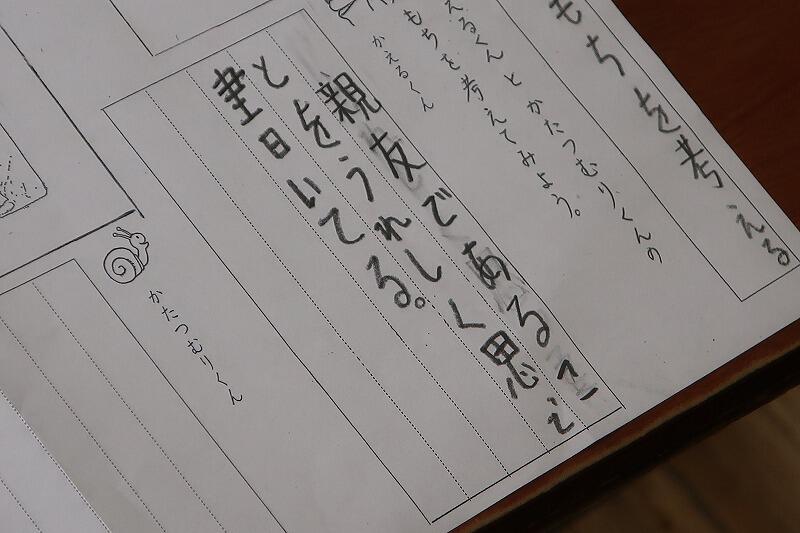 もちを考える
えるくんとかたつむりくんの
もちを考えてみよう。
かえるくん
親友であるこ
とをうれしく思い
書いてる。
かたつむりくん